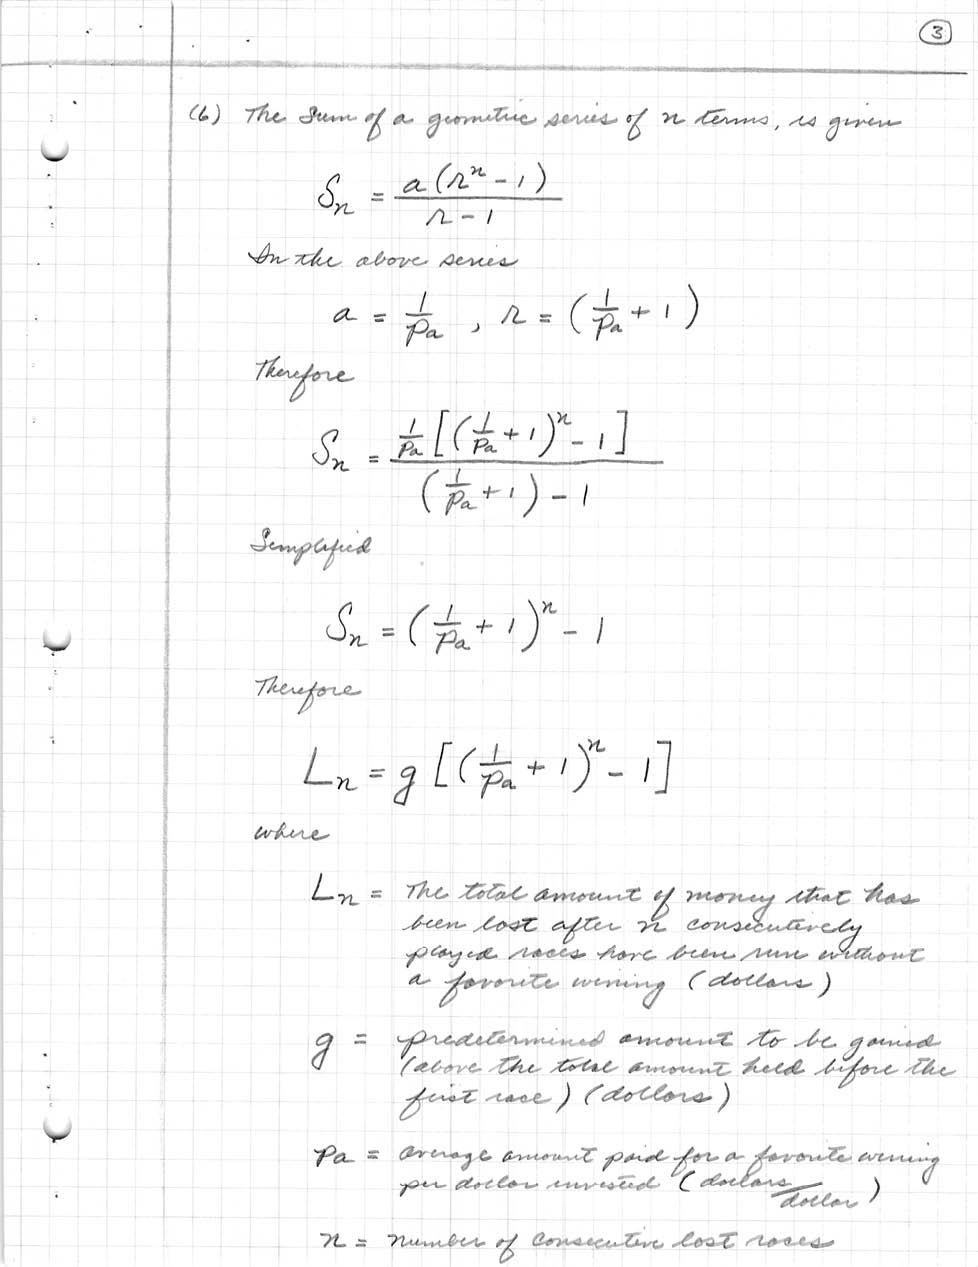 3
(6) The Sum of a geometric series of n terms, is given
Sn = a(r^n - 1) / r - 1
In the above series
a = 1/Pa , r = (1/Pa + 1)
Therefore
Sn = 1/Pa [(1/Pa + 1)^n - 1] / (1/Pa + 1) - 1
Simplified
Sn = (1/Pa + 1)^n - 1
Therefore
Ln = g [(1/Pa + 1)^n - 1]
where
Ln = The total amount of money that has
been lost after n consecutively
played races have been run without
a favorite wining (dollars)
g = predetermined amount to be gained
(above the total amount held before the
first race) (dollars)
Pa = average amount paid for a favorite wining
per dollar invested (dollars/dollar)
n = number of consecutive lost races